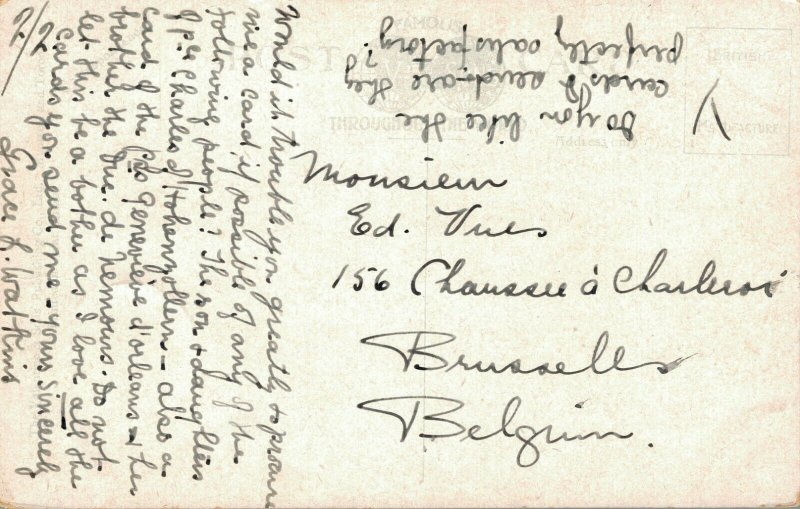 Would it trouble you greatly to procure
me a card if possible of any of the
following people? The son & daughters
of Pce Charles d'Hohenzollern - also a
card of the Pss Geneviève d'Orleans & her
brother the Duc. de Nemours. Do not
let this be a bother as I love all the
cards you send me - yours sincerely
2/2. Grace L. Watkins
Do you like the
cards I send - are they
perfectly satisfactory?
FAMOUS
POST CARD
THROUGHOUT THE WORLD
Address Only
BRITISH
MANUFACTURE
Monsieur
Ed. Vues
156 Chaussee à Charleroi
Brussells
Belgium.